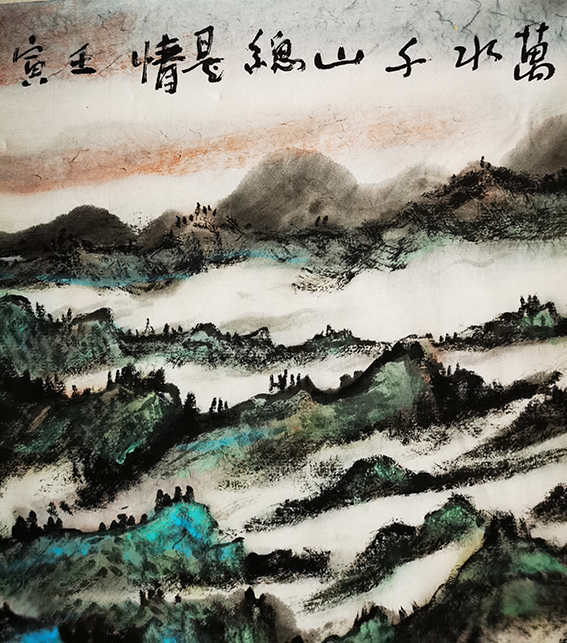 萬水千山總是情 壬寅